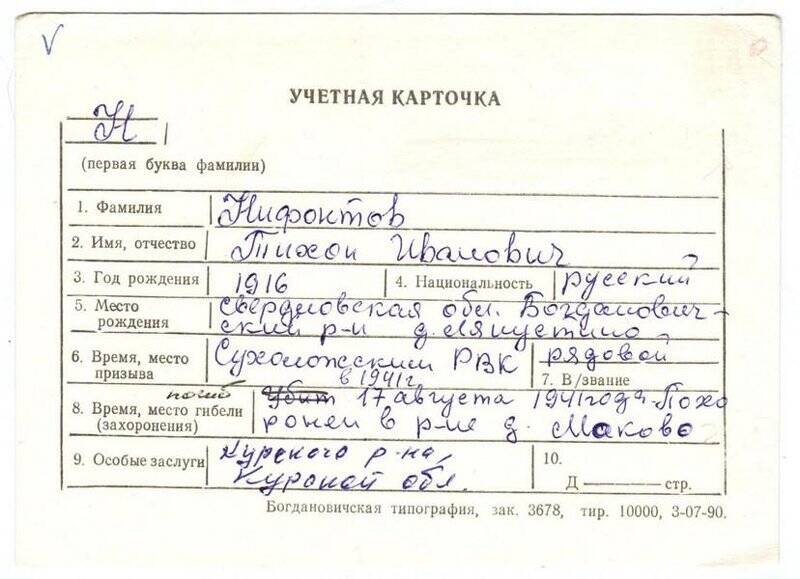 V
УЧЕТНАЯ КАРТОЧКА
Н
(первая буква фамилии)
1. Фамилия Нифонтов
2. Имя, отчество Тихон Иванович
3. Год рождения 1916 4. Национальность русский
5. Место рождения Свердловская обл. Богданович-
ский р-н д. Ляпустино
6. Время, место призыва Сухоложским РВК
в 1941 г.
7. В/звание рядовой
8. Время, место гибели (захоронения) погиб Убит 17 августа 1941 года. Похо
ронен в р-не д. Маково
9. Особые заслуги Курского р-на,
Курской обл.
10.
Д ——— стр.
Богдановичская типография, зак. 3678, тир. 10000, 3-07-90.